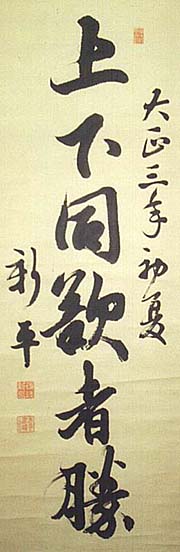 大正三年初夏
上下同欲者勝
新平